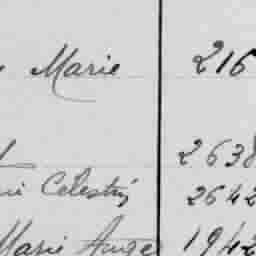 Marie 216
2638
Celestin 2642
Marie Ange 1942